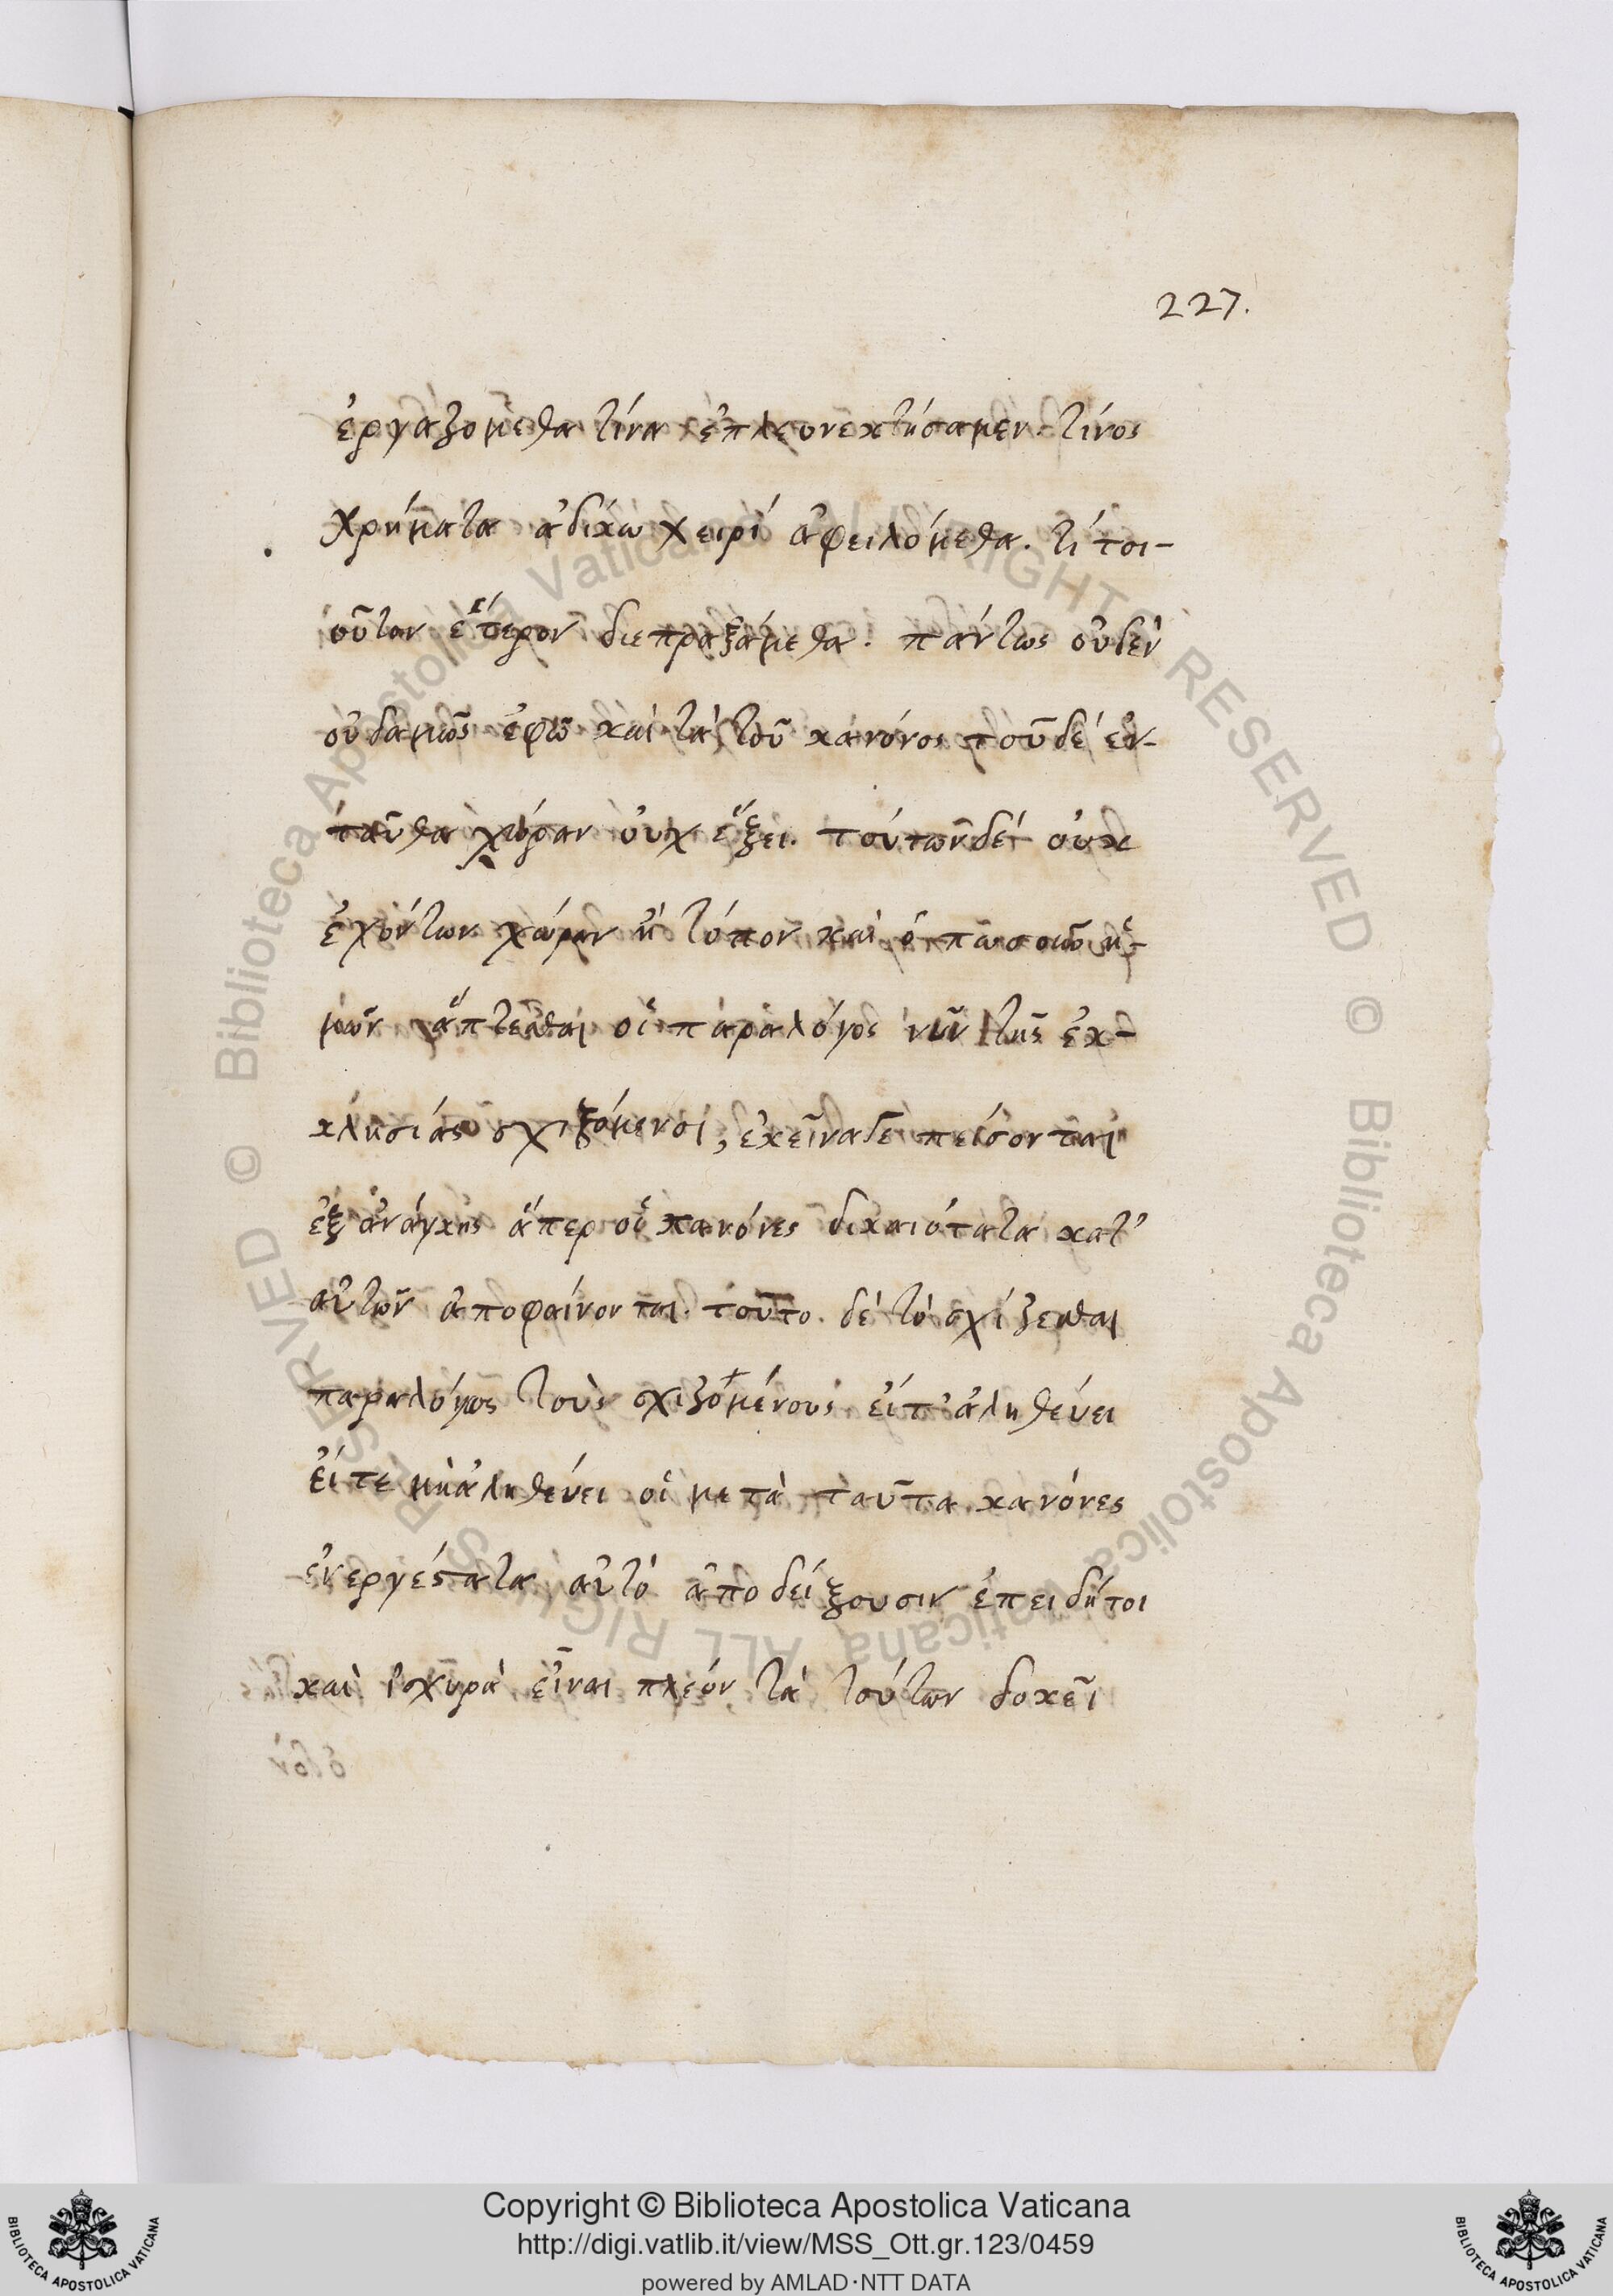 227.
ἐργαζομεθα τίνα ἐπλεονεκτήσαμεν. τίνος
χρήματα ἀδίκω χειρί ἀφειλόμεθα. τί τοι-
οῦτον ἕτερον διεπραξάμεθα. πάντως οὐδεν
οὐδαμῶς ἐφῶ καὶ τὰ τοῦ κανόνος τοῦδέ ἐν-
ταῦθα χώραν οὐχ ἕξει. τούτων δέ οὐκ
ἐχόντων χώραν ἢ τόπον καὶ
μῶν ἅπτεσθαι οἱ παραλόγος νῦν τῆς ἐκ-
κλησιάς σχιζόμενοι, ἐκεῖνα δε πείσονται
ἐξ ἀνάγκης ἅπερ οἱ κανόνες δικαιότατα κατ᾽
αὐτῶν ἀποφαίνονται. τοῦτο δέ τὸ σχίζεσθαι
παραλόγως τοὺς σχιζομένους εἴτ᾽ ἀληθεύει
εἴτε μὴ ἀληθεύει οἱ μετὰ ταῦτα κανόνες
ἐνεργέστατα αὐτό ἀποδείξουσιν ἐπειδήτοι
καὶ ἰσχυρὰ εἶναι πλέον τὰ τούτων δοκεῖ
© Biblioteca Apostolica Vaticana ALL RIGHTS RESERVED
© Biblioteca Apostolica Vaticana ALL RIGHTS RESERVED
Copyright © Biblioteca Apostolica Vaticana
http://digi.vatlib.it/view/MSS_Ott.gr.123/0459
powered by AMLAD·NTT DATA
BIBLIOTECA APOSTOLICA VATICANA
BIBLIOTECA APOSTOLICA VATICANA